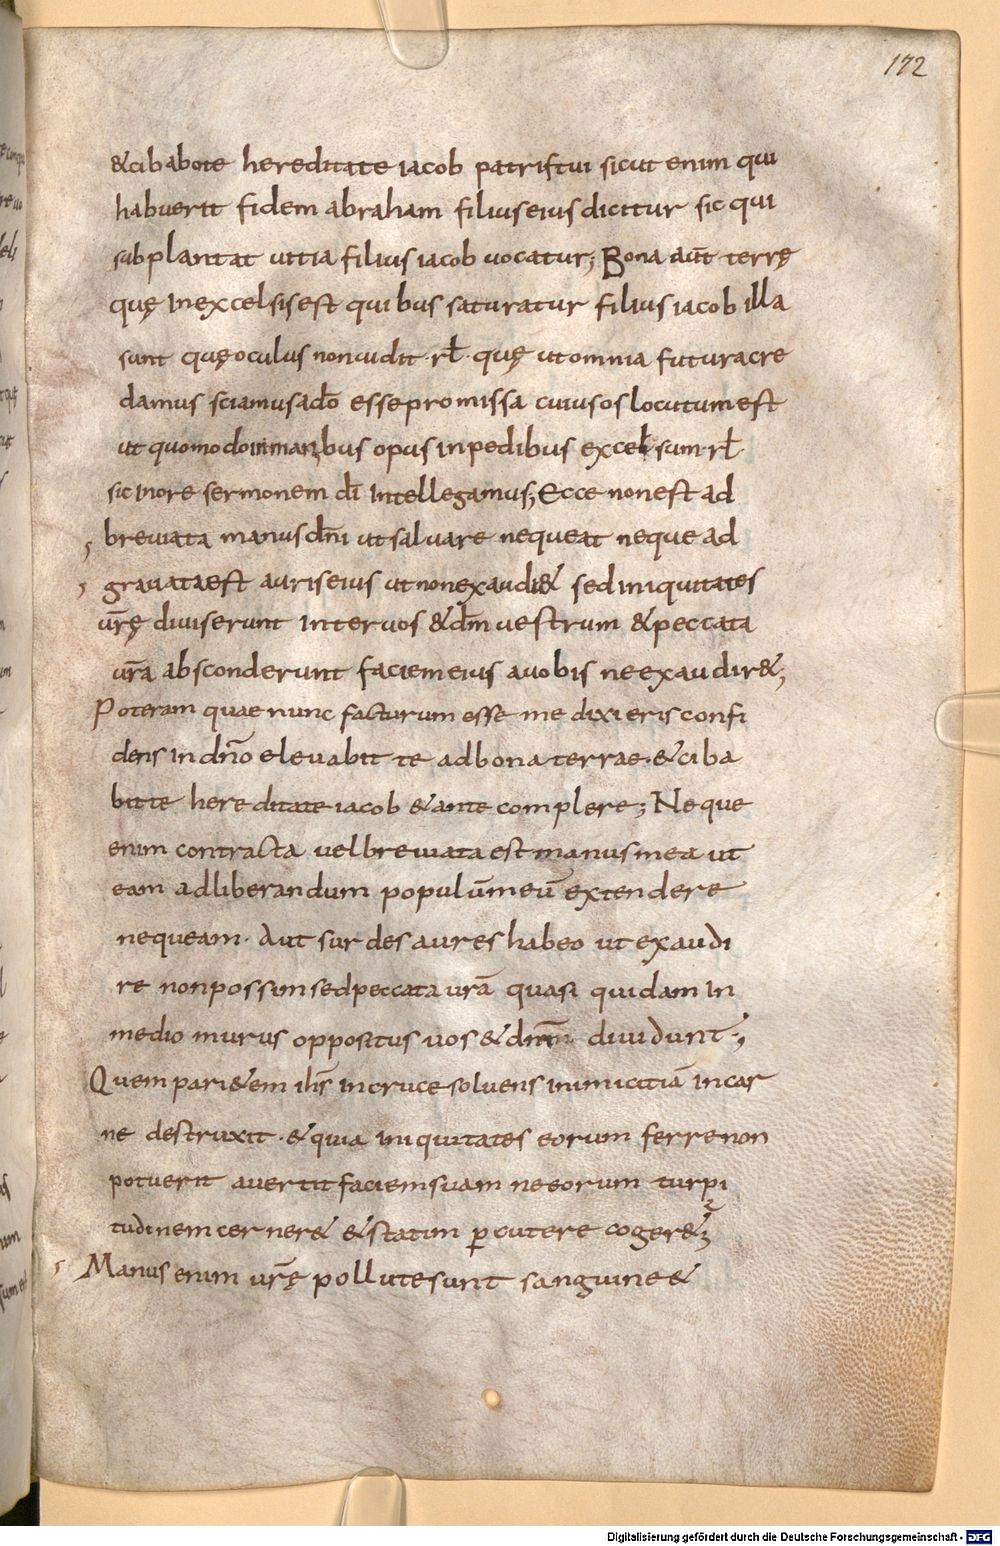 172
&cibabote hereditate iacob patristui sicut enim qui
habuerit fidem abraham filius eius dicitur sic qui
subplantat uitia filius iacob uocatur; Bona aut̄ terrę
quę inexcelsis est quibus saturatur filius iacob illa
sunt quę oculus non uidit · rł · quę ut omnia futura cre
damus sciamus ad̄o esse promissa cuius os locutum est
ut quomodo in manibus opus in pedibus excelsum rł
sic in ore sermonem dī intellegamus; Ecce non est ad
breuiata manus dn̄i ut saluare nequeat neque ad
grauata est auris eius ut non exaudi& sed iniquitates
ur̄ę diuiserunt inter uos & dm̄ uestrum & peccata
ur̄a absconderunt faciem eius a uobis ne exaudir&;
Poteram quae nunc facturum esse me dixi eris confi
dens in dn̄o eleuabit te ad bona terrae · & ciba
bit te hereditate iacob & ante complere; Neque
enim contracta uel breuiata est manus mea ut
eam ad liberandum populū meū extendere
nequeam · Aut surdes aures habeo ut exaudi
re non possim sed peccata ur̄a quasi quidam in
medio murus oppositus uos & dn̄m diuidunt;
Quem pari&em ih̄s in cruce soluens inimicitiā in car
ne destruxit · & quia iniquitates eorum ferre non
potuerit auertit faciem suam ne eorum turpi
tudinem cerner& & statim p̱cutere coger&;
Manus enim ur̄ę pollute sunt sanguine &
Digitalisierung gefördert durch die Deutsche Forschungsgemeinschaft - DFG